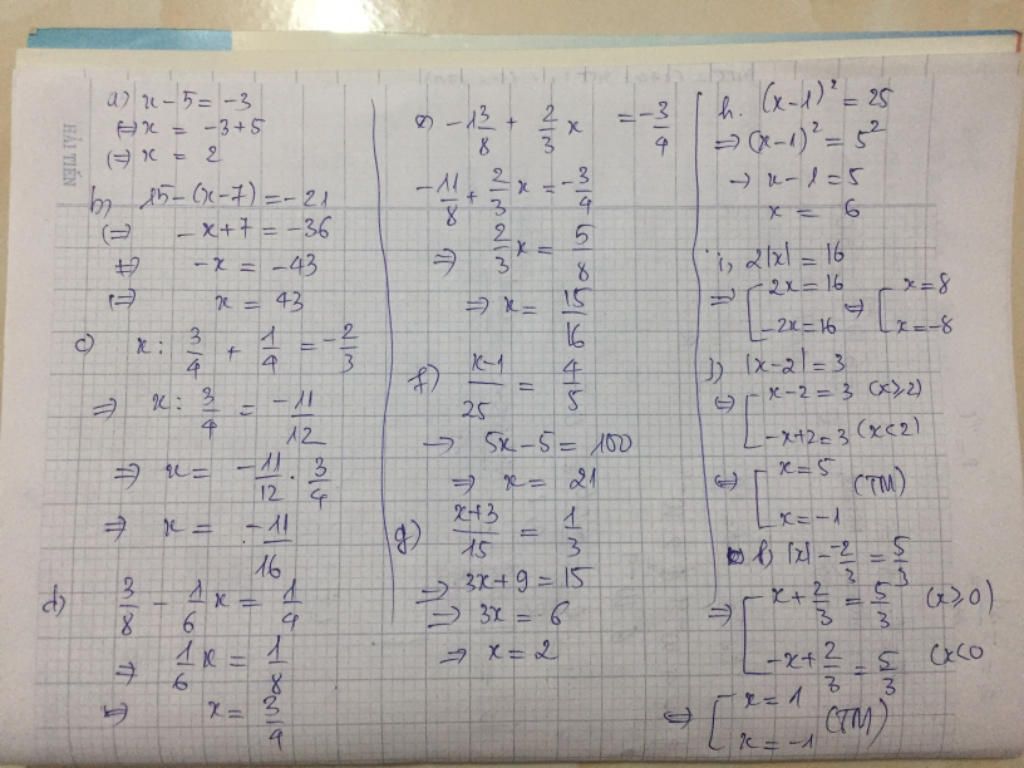 HẢI TIẾN
a) x - 5 = -3
⇔ x = -3+5
⇔ x = 2
b) 15-(x-7) = -21
⇔ -x+7 = -36
⇔ -x = -43
⇔ x = 43
c) x : 3/4 + 1/4 = -2/3
⇒ x : 3/4 = -11/12
⇒ x = -11/12 . 3/4
⇒ x = -11/16
d) 3/8 - 1/6 x = 1/4
⇒ 1/6 x = 1/8
⇔ x = 3/4
e) -1 3/8 + 2/3 x = -3/4
-11/8 + 2/3 x = -3/4
⇒ 2/3 x = 5/8
⇒ x = 15/16
f) x-1/25 = 4/5
→ 5x-5 = 100
⇒ x = 21
g) x+3/15 = 1/3
⇒ 3x+9 = 15
⇒ 3x = 6
⇒ x = 2
h. (x-1)² = 25
⇒ (x-1)² = 5²
→ x-1 = 5
x = 6
i, 2|x| = 16
⇒ [ 2x = 16 ⇔ [ x = 8
-2x = 16 x = -8
j) |x-2| = 3
⇔ [ x-2 = 3 (x≥2)
-x+2 = 3 (x<2)
⇔ [ x = 5 (TM)
x = -1
k) |x| - -2/3 = 5/3
⇒ [ x + 2/3 = 5/3 (x≥0)
-x + 2/3 = 5/3 (x<0
⇔ [ x = 1 (TM)
x = -1